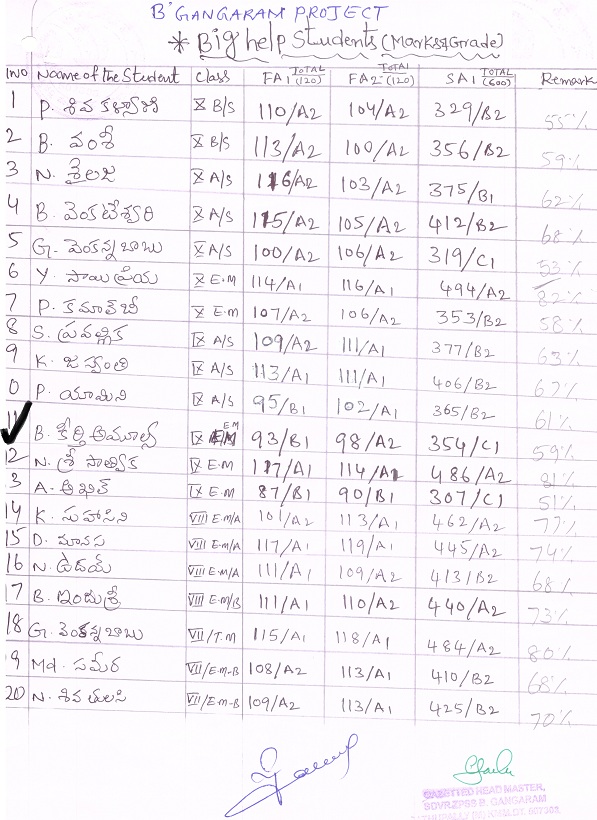 B'GANGARAM PROJECT
* Big help Students (Marks & Grade)
S.NO Name of the Student Class FA1 TOTAL (120) FA2 TOTAL (120) SA1 TOTAL (600) Remark
1 P. శివ కళ్యాణి X B/S 110/A2 104/A2 329/B2 55%
2 B. వంశీ X B/S 113/A2 100/A2 356/B2 59%
3 N. శైలజ X A/S 116/A2 103/A2 375/B1 62%
4 B. వెంకటేశ్వరి X A/S 115/A2 105/A2 412/B2 68%
5 G. వెంకన్న బాబు X A/S 100/A2 106/A2 319/C1 53%
6 Y. సాయి ప్రియ X E.M 114/A1 116/A1 494/A2 82%
7 P. కమాల్ బీ X E.M 107/A2 106/A2 353/B2 58%
8 S. ప్రవల్లిక IX A/S 109/A2 111/A1 377/B2 63%
9 K. జస్వంతి IX A/S 113/A1 111/A1 406/B2 67%
0 P. యామిని IX A/S 95/B1 102/A1 365/B2 61%
11 B. కీర్తి అమూల్య IX EM 93/B1 98/A2 354/C1 59%
12 N. శ్రీ సాత్విక IX E.M 117/A1 114/A1 486/A2 81%
3 A. అఖిల్ IX E.M 87/B1 90/B1 307/C1 51%
14 K. సుహాసిని VIII E.M/A 101/A2 113/A1 462/A2 77%
15 D. మానస VIII E.M/A 117/A1 119/A1 445/A2 74%
16 N. ఉదయ్ VIII E.M/A 111/A1 109/A2 413/B2 68%
17 B. ఇందుశ్రీ VIII E.M/B 111/A1 110/A2 440/A2 73%
18 G. వెంకన్నబాబు VII/T.M 115/A1 118/A1 484/A2 80%
9 Md. సమీర VII/E.M-B 108/A2 113/A1 410/B2 68%
20 N. శివ తులసి VII/E.M-B 109/A2 113/A1 425/B2 70%
GAZETTED HEAD MASTER,
B. GANGARAM